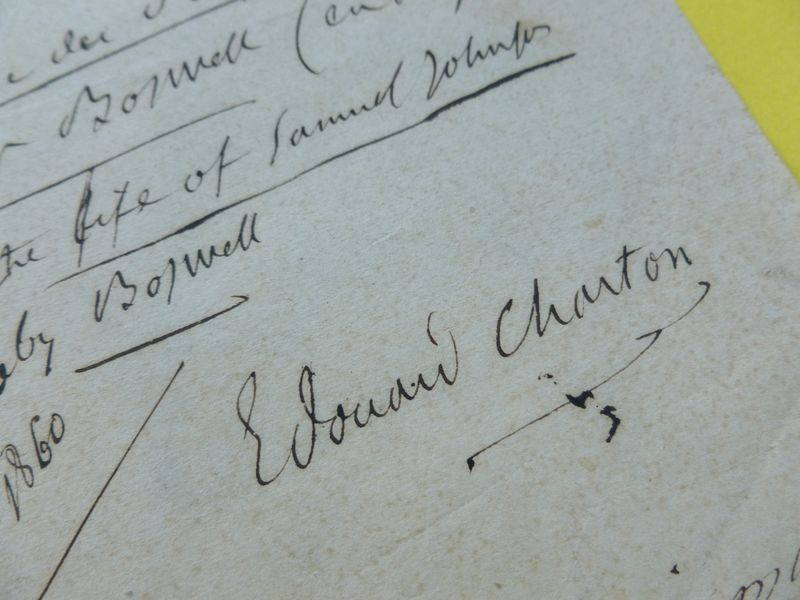 Boswell (en
the life of Samuel Johnson
by Boswell
1860
Edouard Charton